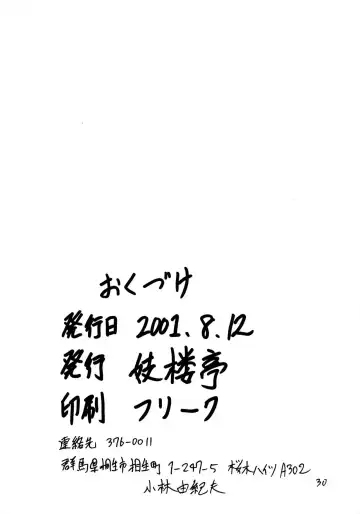 おくづけ
発行日 2001.8.12
発行 妓楼亭
印刷 フリーク
連絡先 376-0011
群馬県桐生市相生町 1-247-5 桜木ハイツA302
小林由紀夫
30